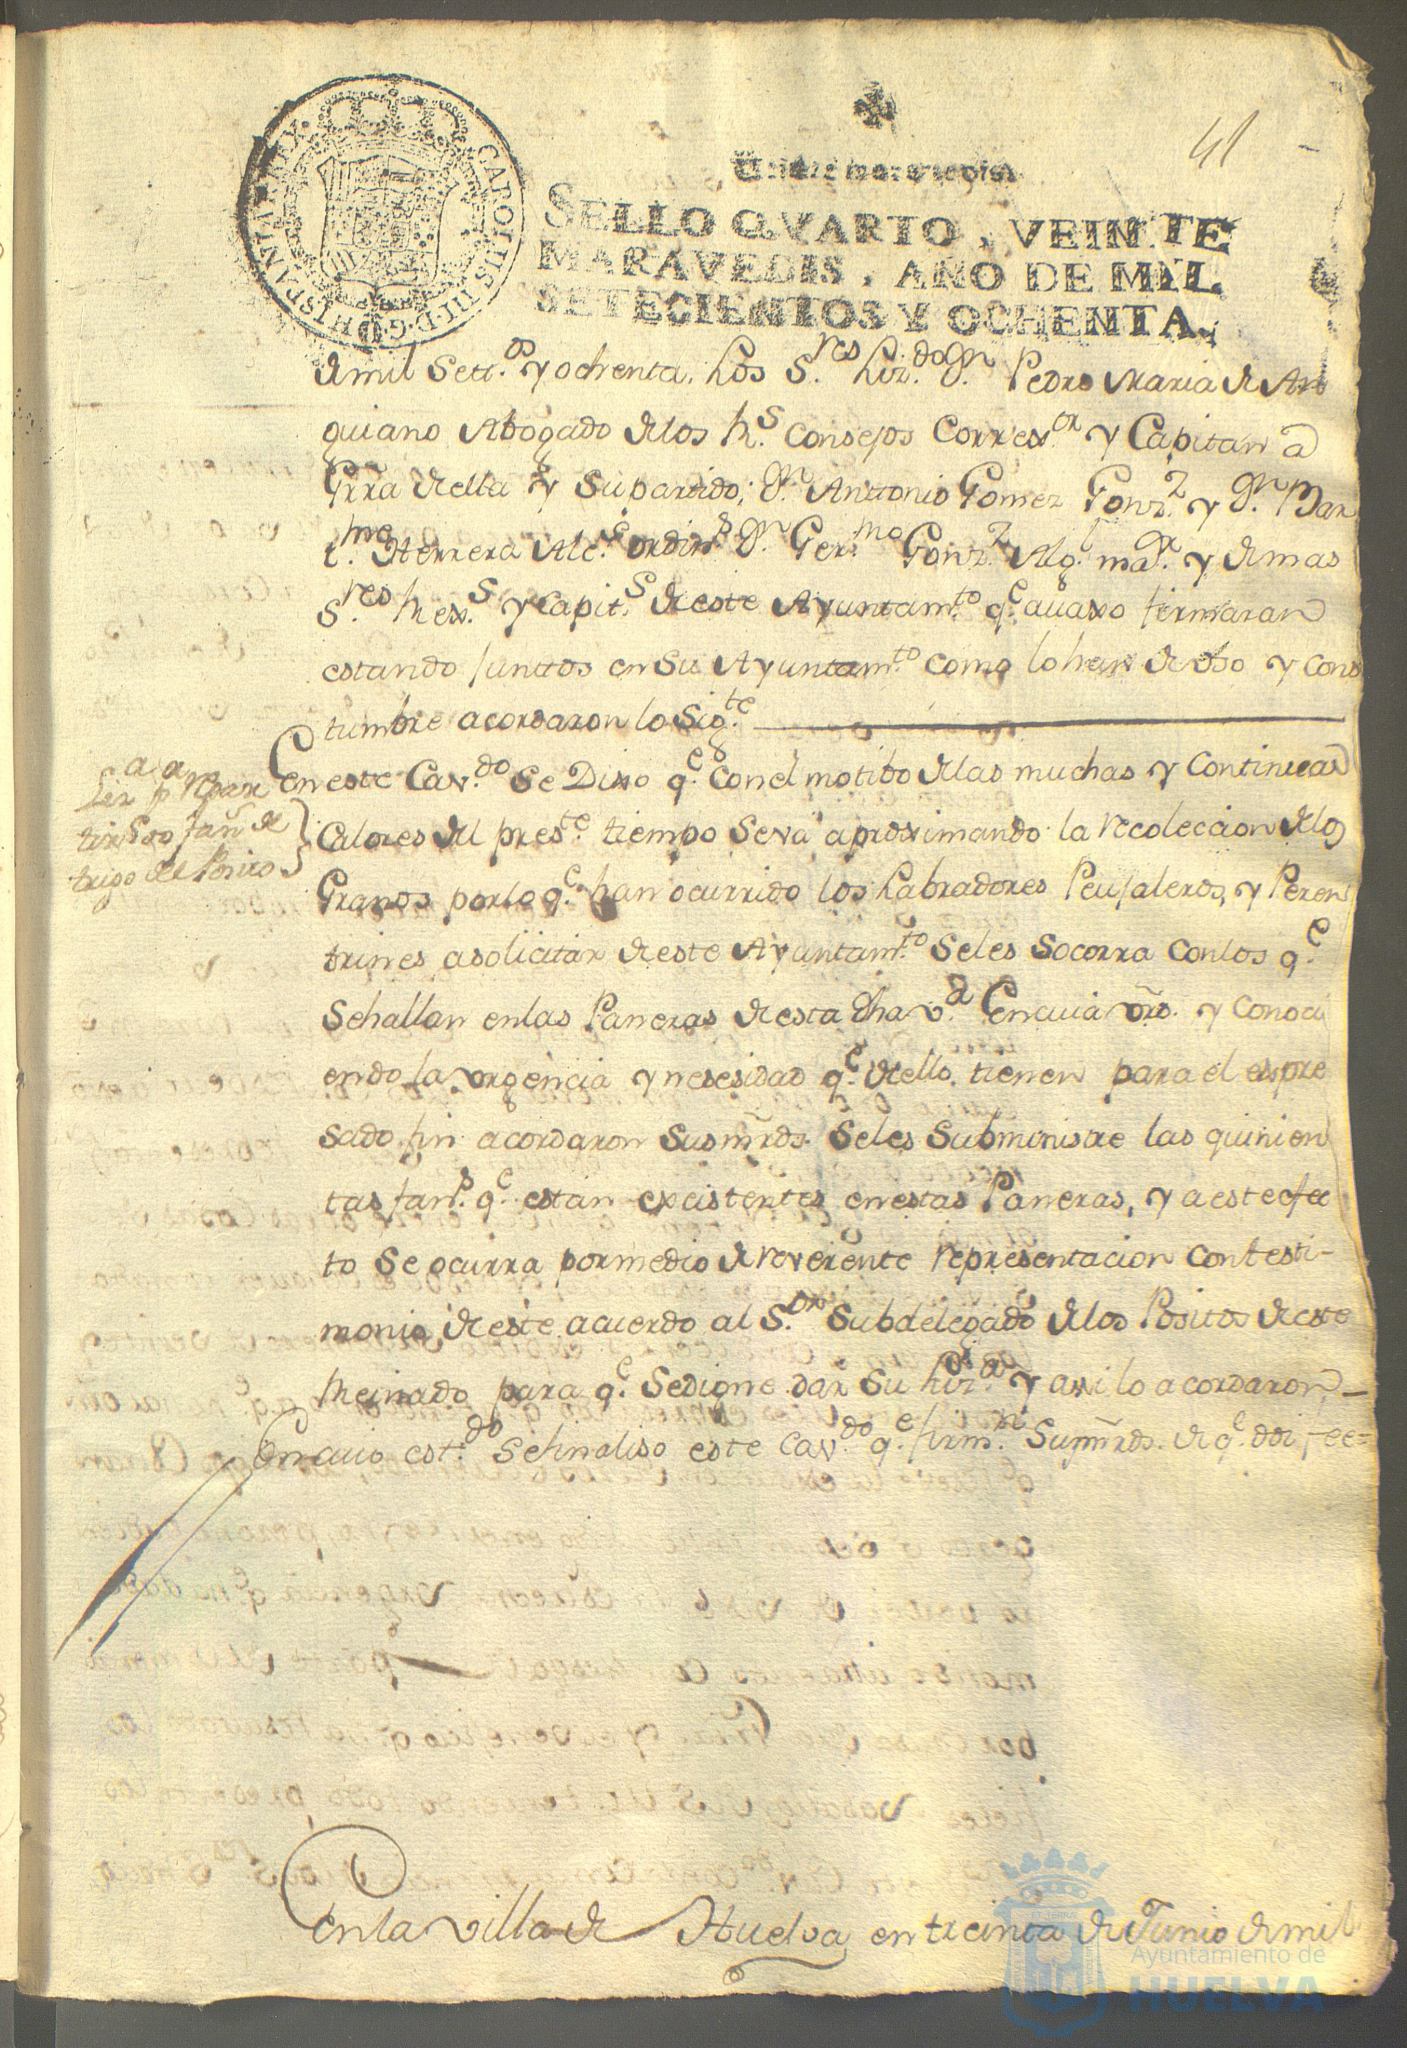 41
CAROLUS III D. G. HISPANIAR. REX
Veinte maravedis
SELLO QVARTO, VEINTE
MARAVEDIS, AÑO DE MIL
SETECIENTOS Y OCHENTA.
de mil Sett.os y ochenta. Los S.res Liz.do Dn Pedro Maria de An
guiano Abogado de los Rs. Consejos Correx.or y Capitan a
Grra de ella y Su partido; Dn. Anttonio Gomez Gonz.z y Dn. Bar
t.me Herrera Alc.s ordin.s Dn. Ger.mo Gonz.z Alg.l mar. y demas
S.res Rex.s y Capit.s de este Ayuntam.to q.e avaxo firmaran
estando junttos en Su Ayuntam.to como lo han de vso y cons
tumbre acordaron lo Sig.te
Liz.a p.a Repar
tir 500 fan.s de
trigo del Posito
En este Cav.do Se Dixo q.e con el motibo de las muchas y Continuas
Calores del pres.te tiempo Se va aproximando la recoleccion de los
Granos por lo q.e han ocurrido los Labradores Peujaleros, y Peren
trines a solicitar de este Ayuntam.to Se les Socorra con los q.e
Se hallan en las Paneras de esta dha v.a En cuia vrd. y Conoci
endo la vrgencia y nesesidad q.e de ello tienen para el expre
sado fin acordaron Sus mrds. Se les Subministre las quinien
tas fan.s q.e estan existentes en estas Paneras, y a este efec
to Se ocurra por medio de reverente representacion con testi-
monio de este acuerdo al S.or Subdelegado de los Positos de este
Reinado para q.e Se digne dar Su Liz.a y asi lo acordaron
En cuio est.do Se finaliso este Cav.do q.e firm.n Sus mrds. de q.e doi fee=
En la villa de Huelva en treinta de Junio de mil
Ayuntamiento de
HUELVA